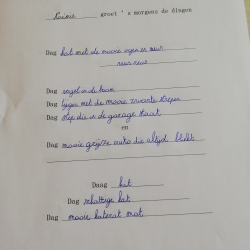 groet 's morgens de dingen
Dag kat met de mooie ogen en neus
neus neus
Dag vogel in de boom
Dag tijger met de mooie zwarte strepen
Dag step die in de garage staat
en
Dag mooie grijze auto die altijd blinkt
Daag kat
Dag schattige kat
Dag mooie